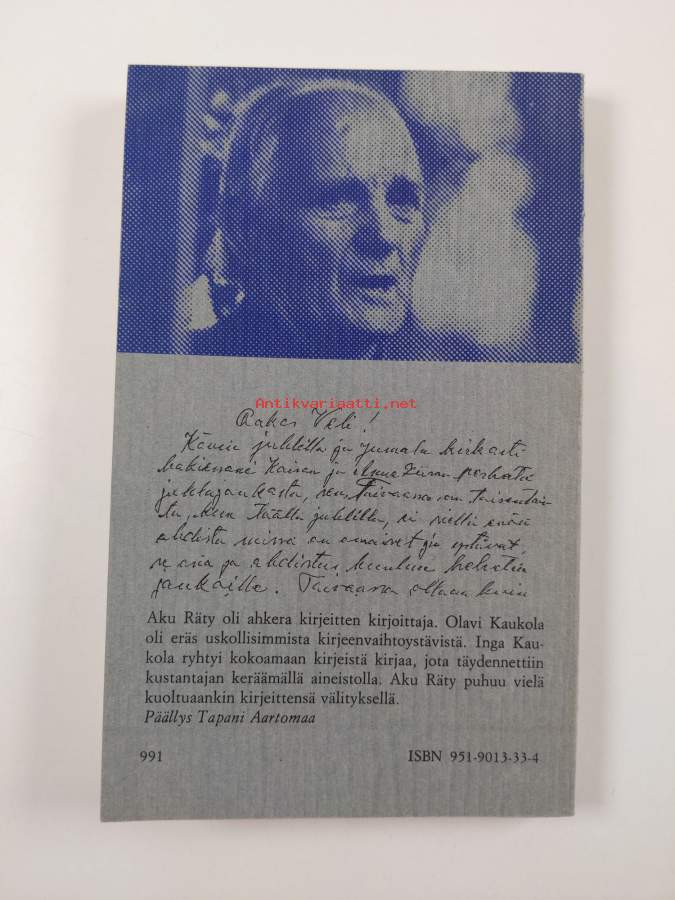 Antikvariaatti.net
Rakas Veli!
Kävin juhlilla ja Jumala kirkasti
Kaisan ja Anna
juhlajoukosta, Taivaassa on
juhlilla, ei siellä enää
ahdista missä on omaiset ja ystävät,
se asia ja ahdistus kuuluu helvetin
joukoille. Taivaassa ollaan kuin
Aku Räty oli ahkera kirjeitten kirjoittaja. Olavi Kaukola
oli eräs uskollisimmista kirjeenvaihtoystävistä. Inga Kau-
kola ryhtyi kokoamaan kirjeistä kirjaa, jota täydennettiin
kustantajan keräämällä aineistolla. Aku Räty puhuu vielä
kuoltuaankin kirjeittensä välityksellä.
Päällys Tapani Aartomaa
991 ISBN 951-9013-33-4